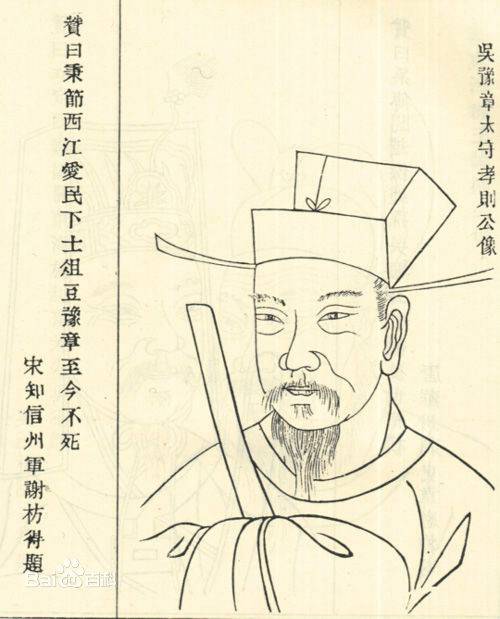 吳豫章太守孝則公像
贊曰秉節西江愛民下士俎豆豫章至今不死
宋知信州軍謝枋得題
Bai百科